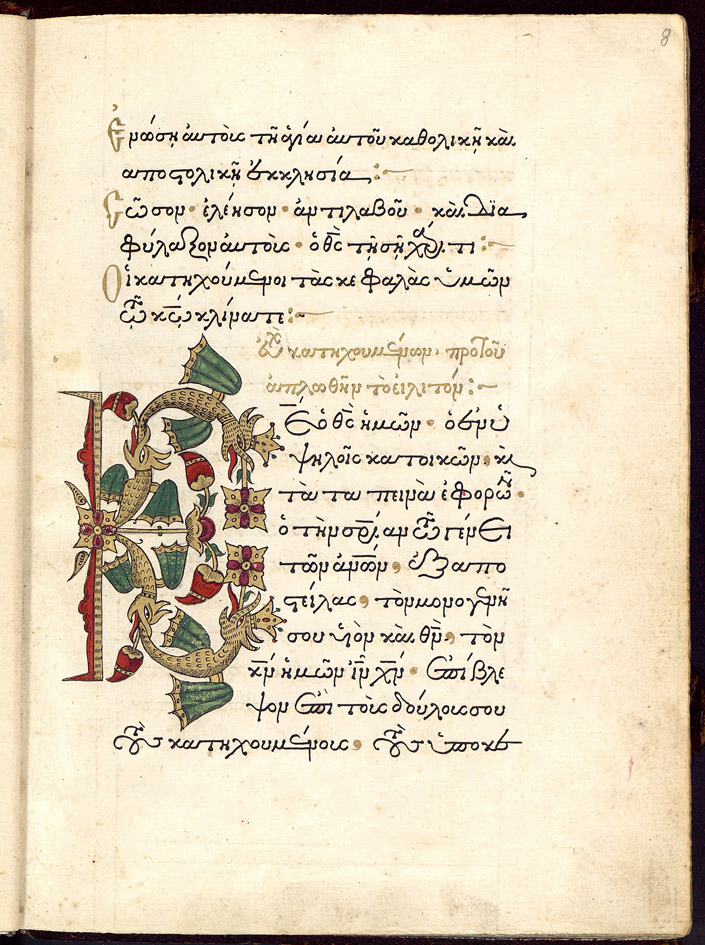 8
Ἑνώση αυτοὺς τῆ ἁγία αυτοῦ καθολικῆ καὶ
αποστολικῆ ἐκκλησία :
Σῶσον · ἐλέησον · ἀντιλαβοῦ · καὶ δια
φύλαξον αυτοὺς · ὁ θς τῆ σῆ χάριτι :
Οἱ κατηχούμενοι τὰς κεφαλὰς ὑμῶν
τῶ κω κλίνατε :
κατηχουμένων · πρὸ τοῦ
ἁπλωθῆν τὸ εἰλιτόν :
Κε ὁ θς ἡμῶν · ὁ ἐν ὑ
ψηλοῖς κατοικῶν, κὶ
τὰ ταπεινὰ ἐφορῶν ·
ὁ τὴν σρίαν τῶ γένει
τῶν ἀνων, ἐξαπο
στείλας, τὸν μονογενῆ
σου υἱὸν καὶ θν, τὸν
κν ἡμῶν ἰν χν · ἐπίβλε
ψον ἐπὶ τοὺς δούλους σου
τοὺς κατηχουμένους · τοὺς ὑποκε